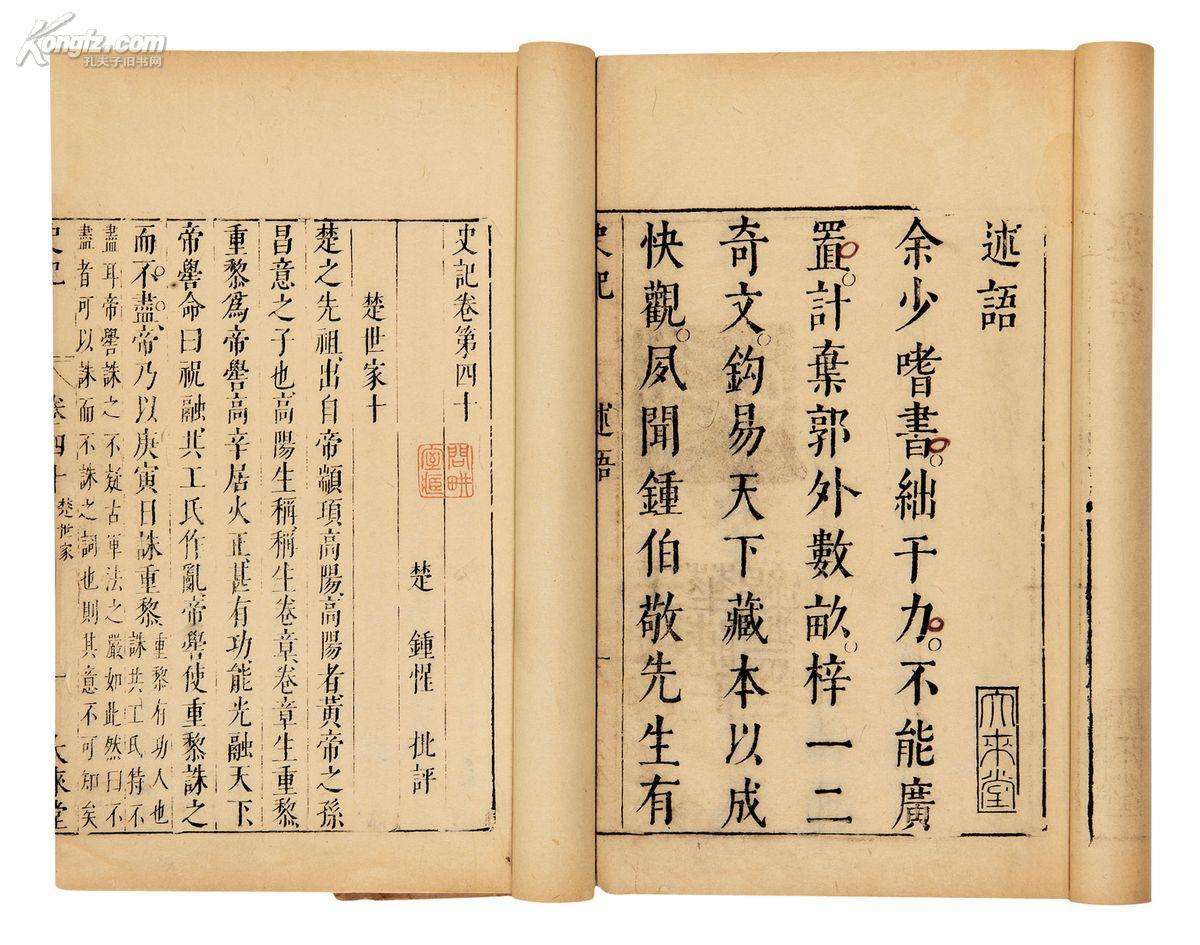 Kongfz.com
孔夫子旧书网
述語
大來堂
余少嗜書絀于力不能廣
置計棄郭外數畝梓一二
奇文鈎易天下藏本以成
快觀夙聞鍾伯敬先生有
史記
述語
一
史記卷第四十
楚 鍾惺 批評
楚世家十
楚之先祖出自帝顓頊高陽高陽者黃帝之孫
昌意之子也高陽生稱稱生卷章卷章生重黎
重黎爲帝嚳高辛居火正甚有功能光融天下
帝嚳命曰祝融共工氏作亂帝嚳使重黎誅之
而不盡帝乃以庚寅日誅重黎
重黎有功人也
誅共工氏特不
盡耳帝嚳誅之不疑古軍法之嚴如此然曰不
盡者可以誅而不誅之詞也則其意不可知矣
史記
卷四十
楚世家
一
大來堂